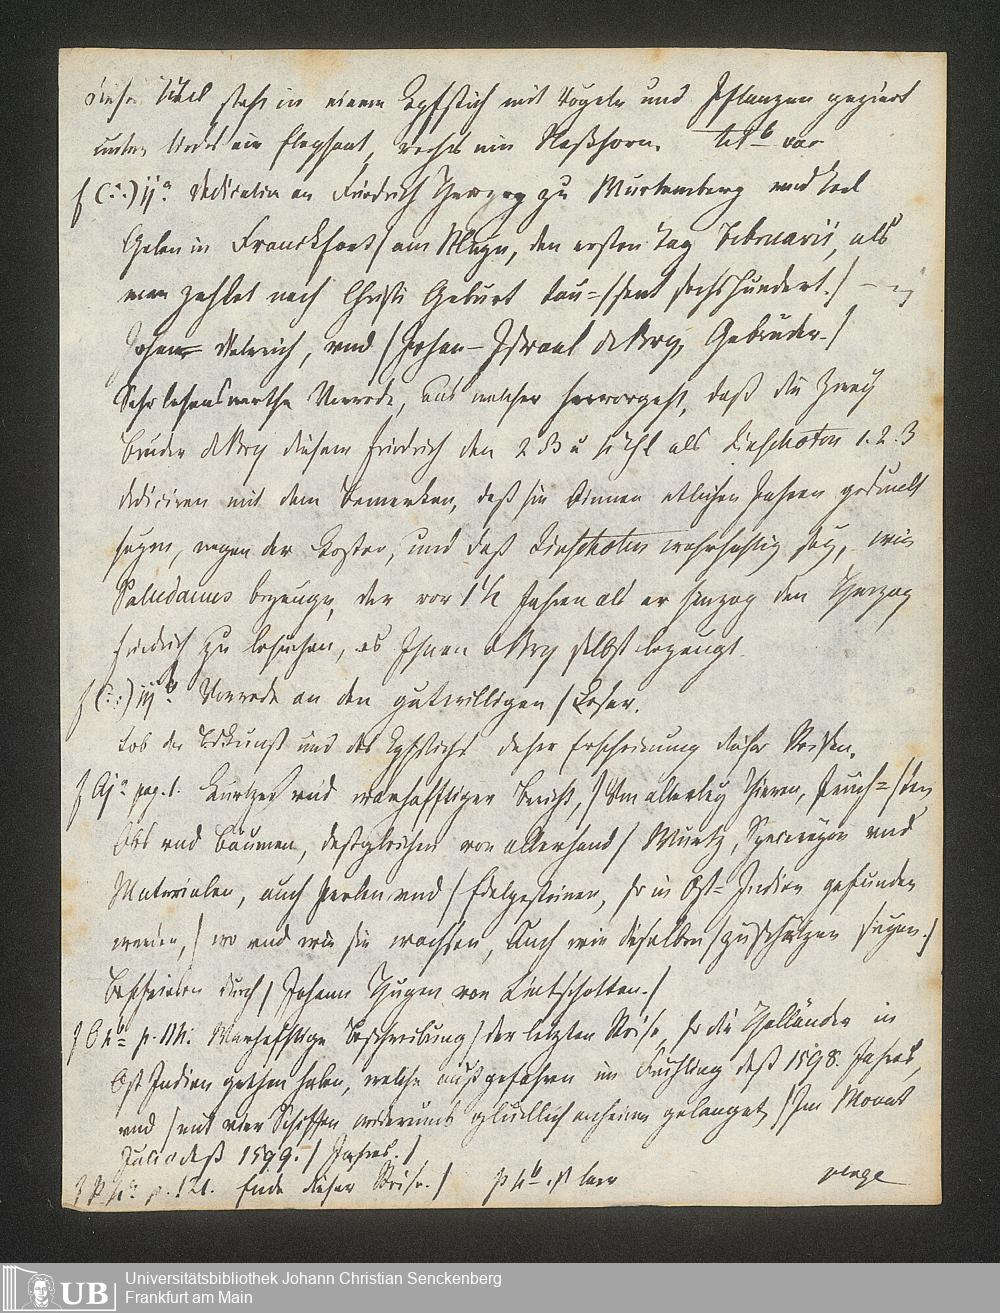 dieser Titel steht in einem Kpfstich mit Vögeln und Pflanzen geziert
unten links ein Elephant, rechts ein Naßhorn. tit b vac
f (::) ij a Dedication an Friedrich Herzog zu Wurtemberg und Teck
Geben in Franckfort / am Mayn, den ersten Tag Februarii, als
man zehlet nach Christi Geburt tau=/sent sechshundert. /
Johann Dietrich, vnd / Johan-Israel de Bry, Gebrüder. /
Sehr lesenswerthe Vorrede, aus welcher hervorgeht, daß die zwey
Brüder de Bry diesem Friedrich den 2 B als Linschoten 1. 2. 3
dediciren mit dem Bemerken, daß sie binnen etlichen Jahren
seyen, wegen der Kosten, und daß Linschoten wahrhaftig sey, wie
Paludanus bezeuge, der vor 1 1/2 Jahren als er hinzog den Herzog
Friedrich zu besuchen, es Ihnen de Bry selbst bezeugt.
f (::) iij b Vorrede an den gutwilligen / Leser.
Lob der und des Kpfstichs daher Erscheinung dieser Reisen.
f Aj a pag. 1. Kurtzer vnd warhafftiger Bericht, / Von allerley Thieren, Früch=/ten,
Obs vnd Bäumen, deßgleichen von allerhand / Wurtz, Specereyen vnd
Materialen, auch Perlen vnd / Edelgesteinen, so in Ost=Indien gefunden
werden, / wo vnd wie sie wachsen, Auch wie dieselben / zu schätzen seyen. /
Beschrieben durch / Johann Hugen von Lintschotten. /
f O b p. Warhafftige Beschreibung / der letzten Reise, so die Holländer in
Ost Indien gethan haben, welche außgefahren im Frühling deß 1598. Jahres,
vnd / mit vier Schiffen widerumb glücklich anheim gelanget, / Im Monat
Julio deß 1599. / Jahres. /
p. 121. Ende dieser Reise. / b ist leer verge
Universitätsbibliothek Johann Christian Senckenberg
Frankfurt am Main
UB